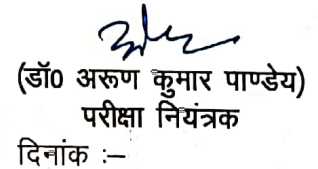 (डॉ0 अरूण कुमार पाण्डेय)
परीक्षा नियंत्रक
दिनांक :–